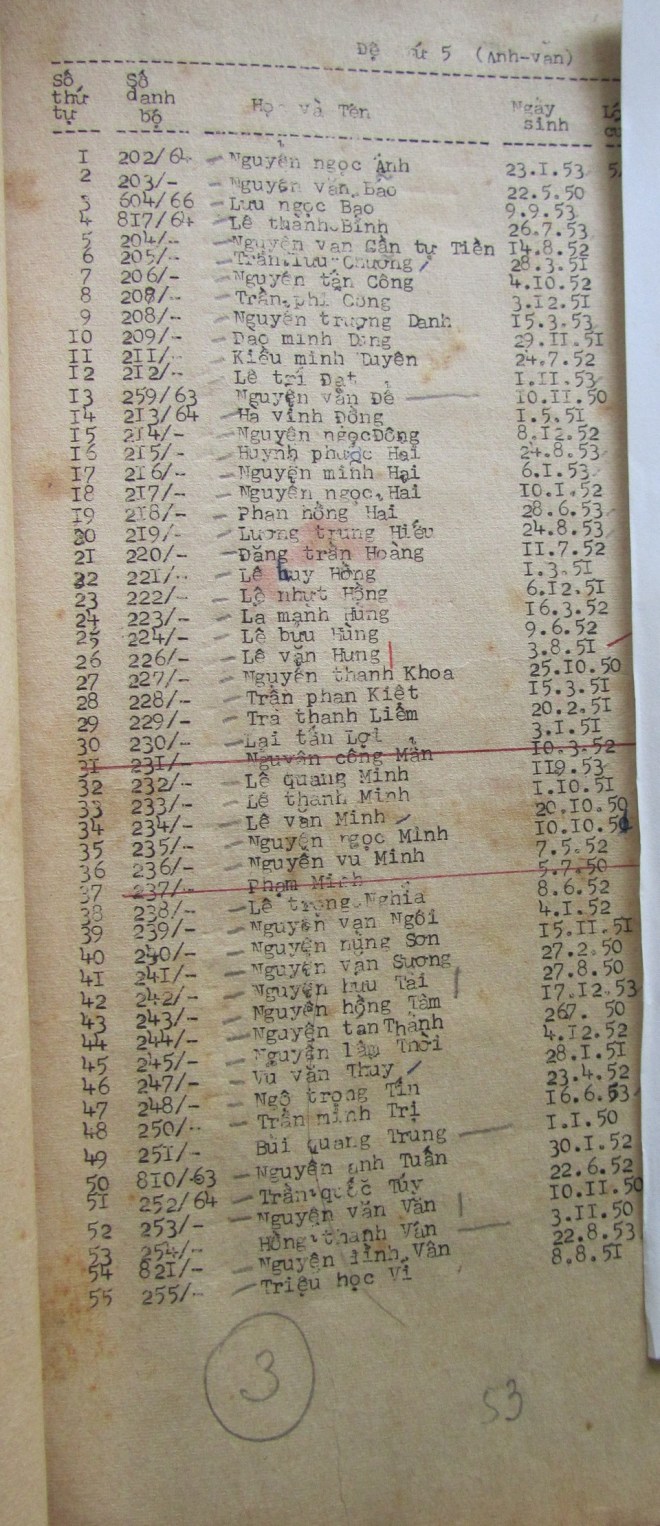 Đệ ứ 5 (Anh-văn)
Số thứ tự Số danh bộ Họ và Tên Ngày sinh
I 202/64 Nguyễn ngọc Ánh 23.I.53
2 203/- Nguyễn văn Bảo 22.5.50
3 604/66 Lưu ngọc Bạo 9.9.53
4 817/64 Lê thành Bình 26.7.53
5 204/- Nguyễn van Cần tự Tiền I4.8.52
6 205/- Trần lưu Chương 28.3.5I
7 206/- Nguyễn tấn Công 4.I0.52
8 208/- Trần phi Công 3.I2.5I
9 208/- Nguyễn trương Danh I5.3.53
I0 209/- Đào minh Dũng 29.II.5I
II 2II/- Kiều minh Duyên 24.7.52
I2 2I2/- Lê trí Đạt I.II.53
I3 259/63 Nguyễn văn Đê I0.II.50
I4 2I3/64 Hà vĩnh Đồng I.5.5I
I5 2I4/- Nguyễn ngọcĐông 8.I2.52
I6 2I5/- Huỳnh phước Hải 24.8.53
I7 2I6/- Nguyễn minh Hải 6.I.53
I8 2I7/- Nguyễn ngọc Hải I0.I.52
I9 2I8/- Phan hồng Hải 28.6.53
20 2I9/- Lương trung Hiếu 24.8.53
2I 220/- Đăng trần Hoàng II.7.52
22 22I/- Lê huy Hồng I.3.5I
23 222/- Lê nhựt Hồng 6.I2.5I
24 223/- Lạ mạnh Hùng I6.3.52
25 224/- Lê bửu Hùng 9.6.52
26 226/- Lê văn Hưng 3.8.5I
27 227/- Nguyễn thanh Khoa 25.I0.50
28 228/- Trần phan Kiệt I5.3.5I
29 229/- Trà thanh Liêm 20.2.5I
30 230/- Lại tấn Lợi 3.I.5I
3I 23I/- Nguyễn công Mẫn I0.3.52
32 232/- Lê quang Minh II9.53
33 233/- Lê thanh Minh I.I0.5I
34 234/- Lê văn Minh 20.I0.50
35 235/- Nguyễn ngọc Minh I0.I0.50
36 236/- Nguyễn vu Minh 7.5.52
37 237/- Phạm Minh 5.7.50
38 238/- Lê trọng Nghĩa 8.6.52
39 239/- Nguyễn văn Ngôi 4.I.52
40 240/- Nguyễn hùng Sơn I5.II.5I
4I 24I/- Nguyễn văn Sương 27.2.50
42 242/- Nguyễn hưu Tài 27.8.50
43 243/- Nguyễn hồng Tâm I7.I2.53
44 244/- Nguyễn tanThành 267. 50
45 245/- Nguyễn lâm Thời 4.I2.52
46 247/- Vu văn Thuy 28.I.5I
47 248/- Ngô trọng Tín 23.4.52
48 250/- Trần minh Trị I6.6.53
49 25I/- Bùi quang Trung I.I.50
50 8I0/63 Nguyễn anh Tuấn 30.I.52
5I 252/64 Trần quốc Túy 22.6.52
52 253/- Nguyễn văn Văn I0.II.50
53 254/- Hồng thanh Vân 3.II.50
54 82I/- Nguyễn đình Vân 22.8.53
55 255/- Triệu học Vi 8.8.5I
3
53